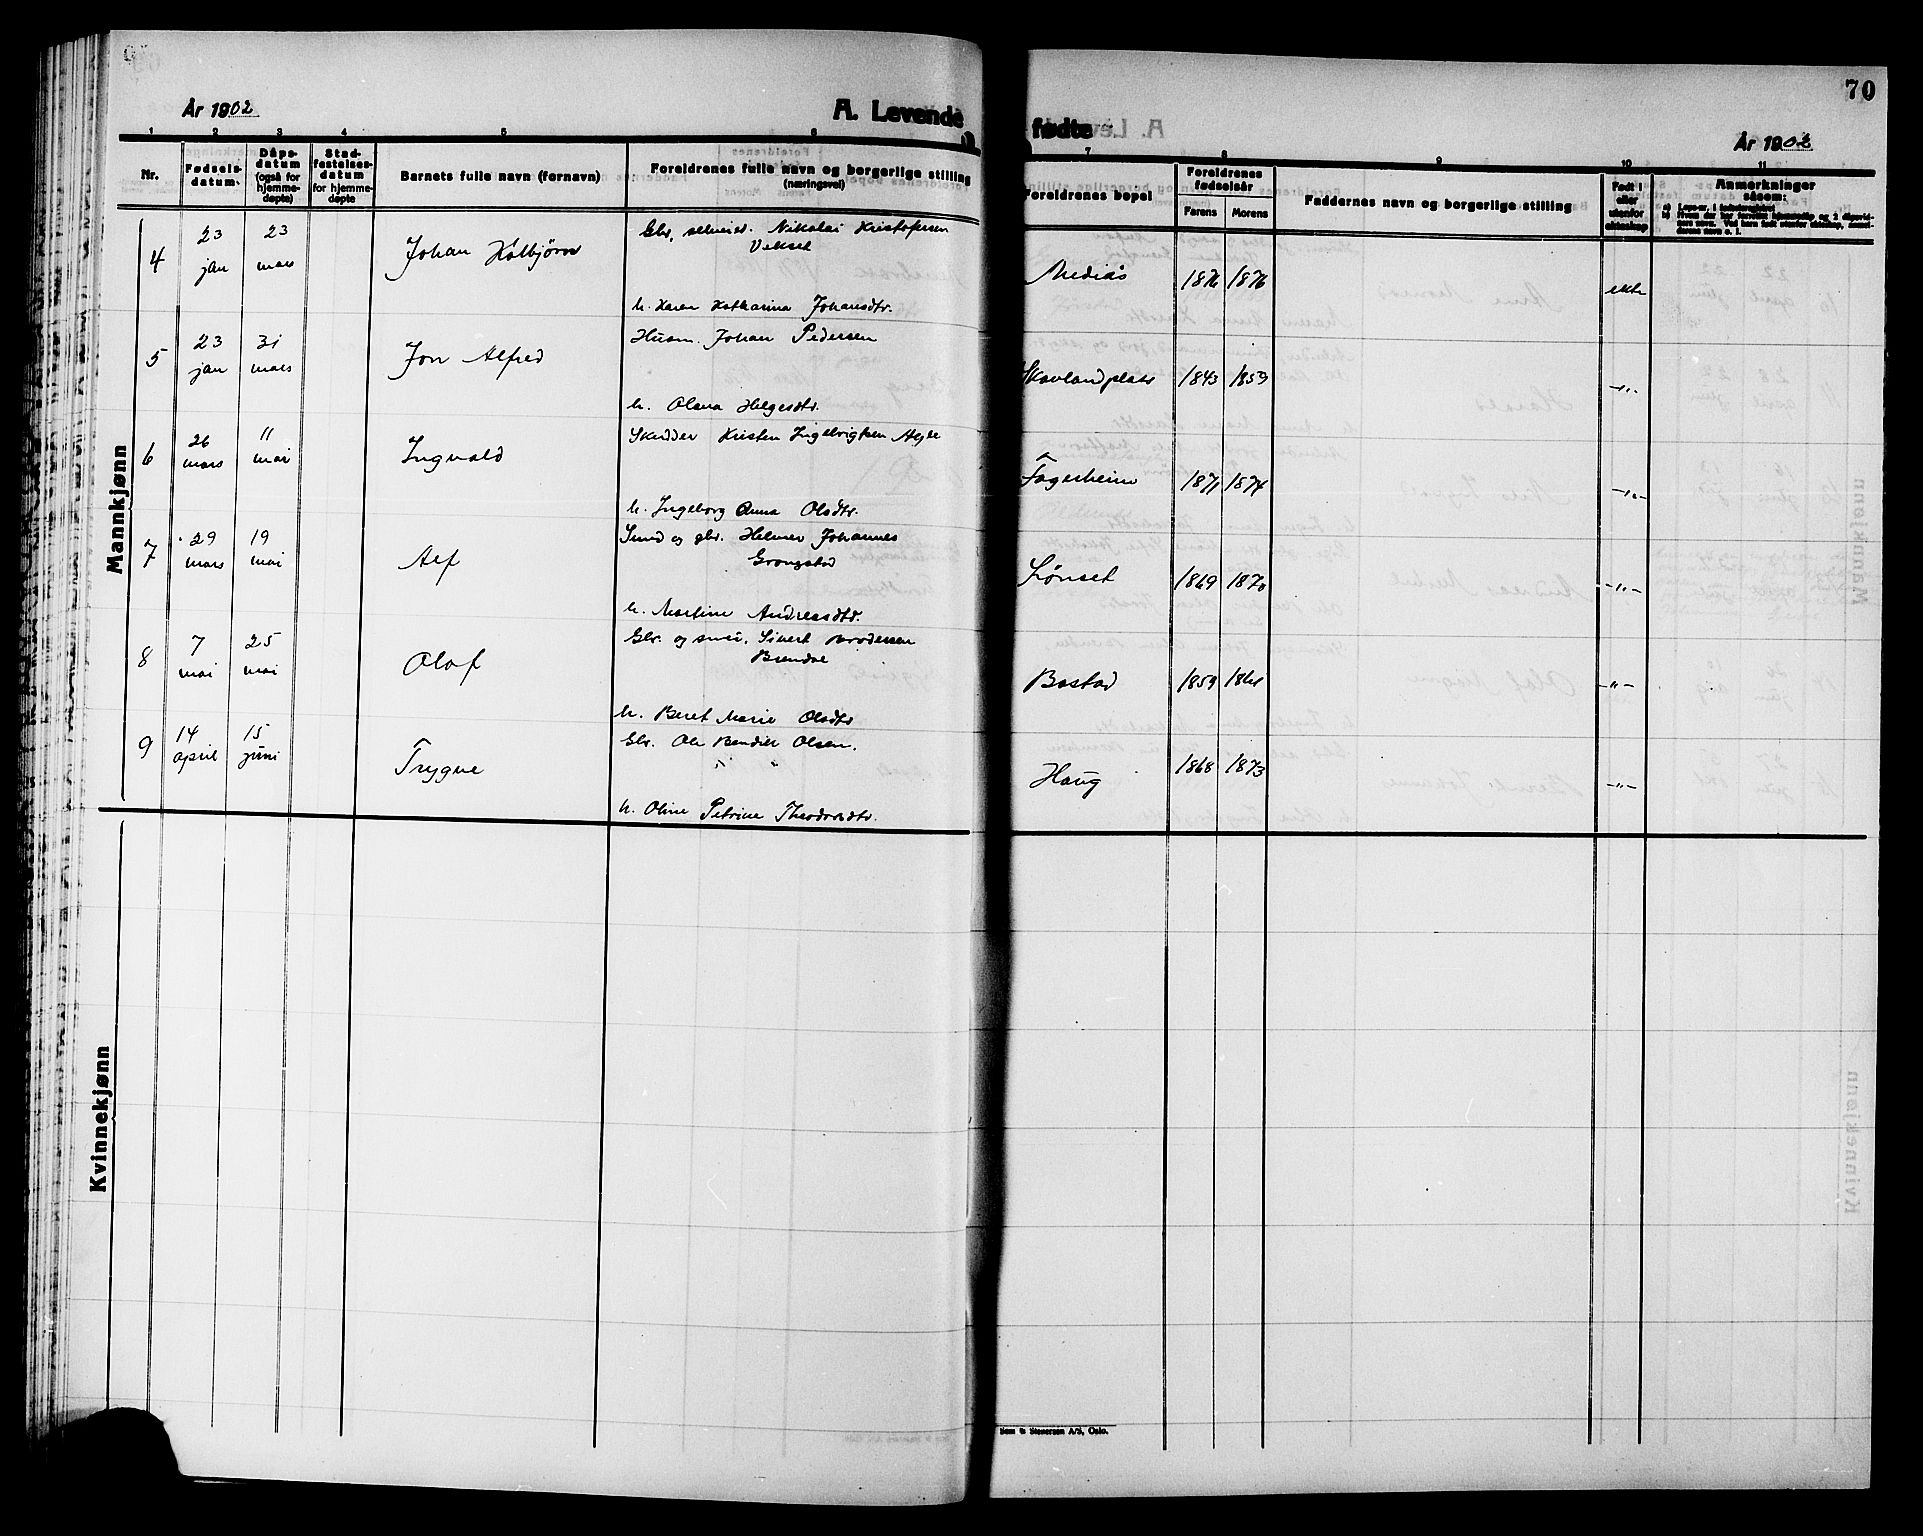 År 1902
A. Levende
fødte
År 1902
70
1 2 3 4 5 6 7 8 9 10 11
Nr.
Fødsels-
datum.
Dåps-
datum
(også for
hjemme-
døpte)
Stad-
festelses-
datum
for hjemme-
døpte
Barnets fulle navn (fornavn)
Foreldrenes fulle navn og borgerlige stilling
(næringsvei)
Foreldrenes bopel
Foreldrenes
fødselsår
Farens Morens
Faddernes navn og borgerlige stilling
Født i
eller
utenfor
ekteskap
Anmerkninger
såsom:
Mannkjønn
4 23 jan 23 mars Johan Kolbjørn
Gbr, selveier. Nikolai Kristofersen
Vekset
h. Karen Katharina Johansdtr.
Mediås 1876 1876 ekte
5 23 jan 31 mars Jon Alfred
Husm. Johan Pedersen
h. Olena Helgesdtr.
Skavlandplads 1843 1853 -"-
6 26 mars 11 mai Ingvald
Skredder Kristen Ingebrigtsen
h. Ingeborg Anna Olsdtr.
Fagerheim 1871 1874 -"-
7 29 mars 19 mai Alf
Smed og gbr. Helmer Johannes
Grongstad
h. Martine Andreasdtr.
1869 1870 -"-
8 7 mai 25 mai Olaf
Gbr. og smed. Sivert
h. Beret Marie Olsdtr
Bostad 1859 -"-
9 14 april 15 juni Trygve
Gbr. Ole Bendik Olsen.
h. Oline Petrine Theodorsdtr.
Haug 1868 1873 -"-
Kvinnekjønn
Sem & Stenersen A/S, Oslo.